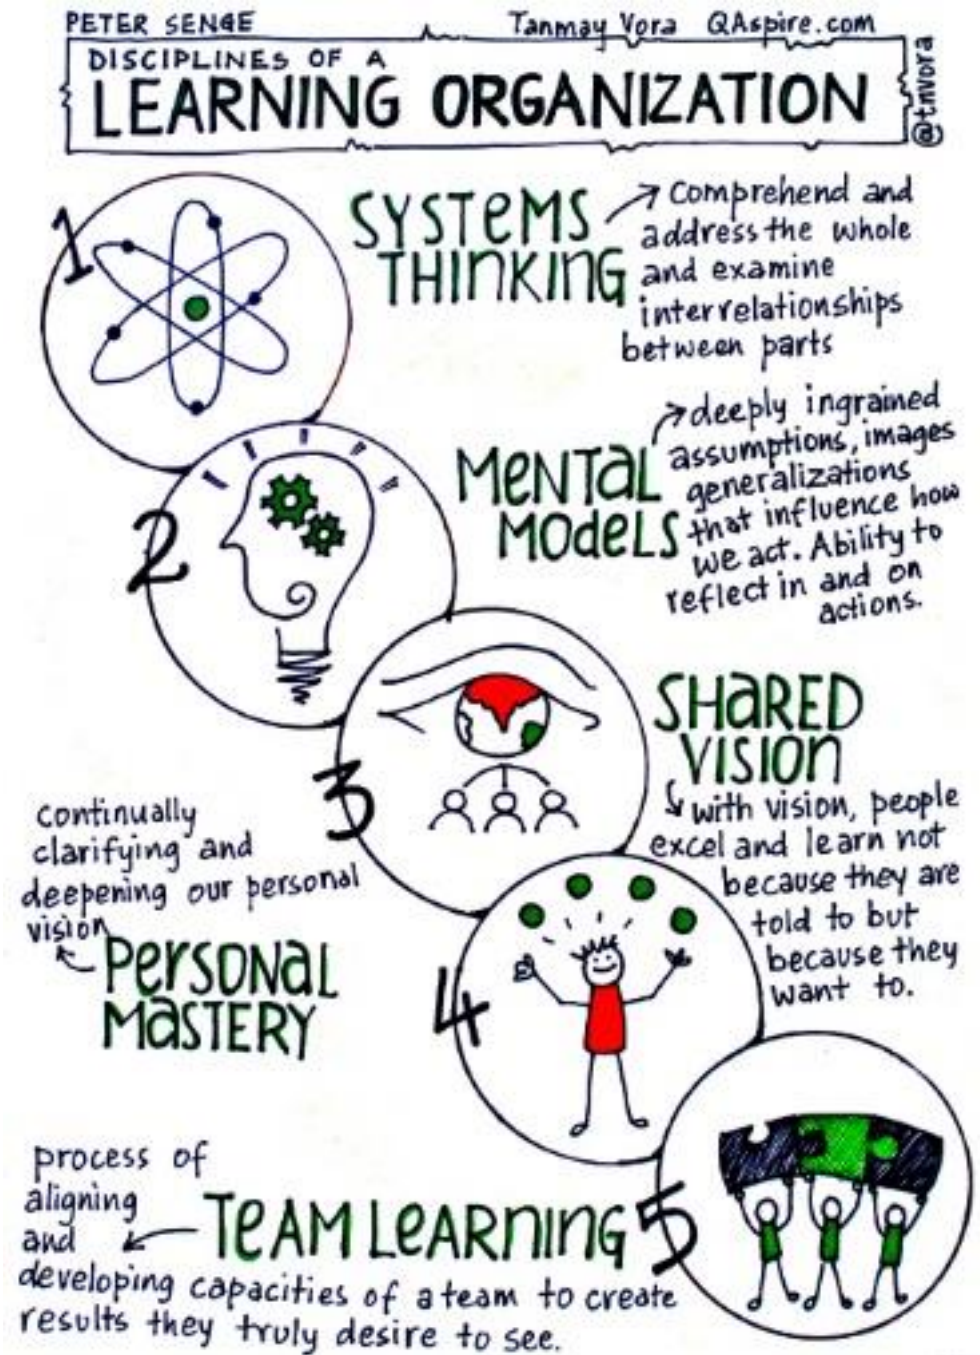 PETER SENGE
Tanmay Vora QAspire.com
@tnvora
DISCIPLINES OF A
LEARNING ORGANIZATION
1
SYSTEMS
THINKING
comprehend and
address the whole
and examine
interrelationships
between parts
2
MENTAL
MODELS
deeply ingrained
assumptions, images
generalizations
that influence how
we act. Ability to
reflect in and on
actions.
3
SHARED
VISION
with vision, people
excel and learn not
because they are
told to but
because they
want to.
4
PERSONAL
MASTERY
continually
clarifying and
deepening our personal
vision
5
TEAM LEARNING
process of
aligning
and
developing capacities of a team to create
results they truly desire to see.